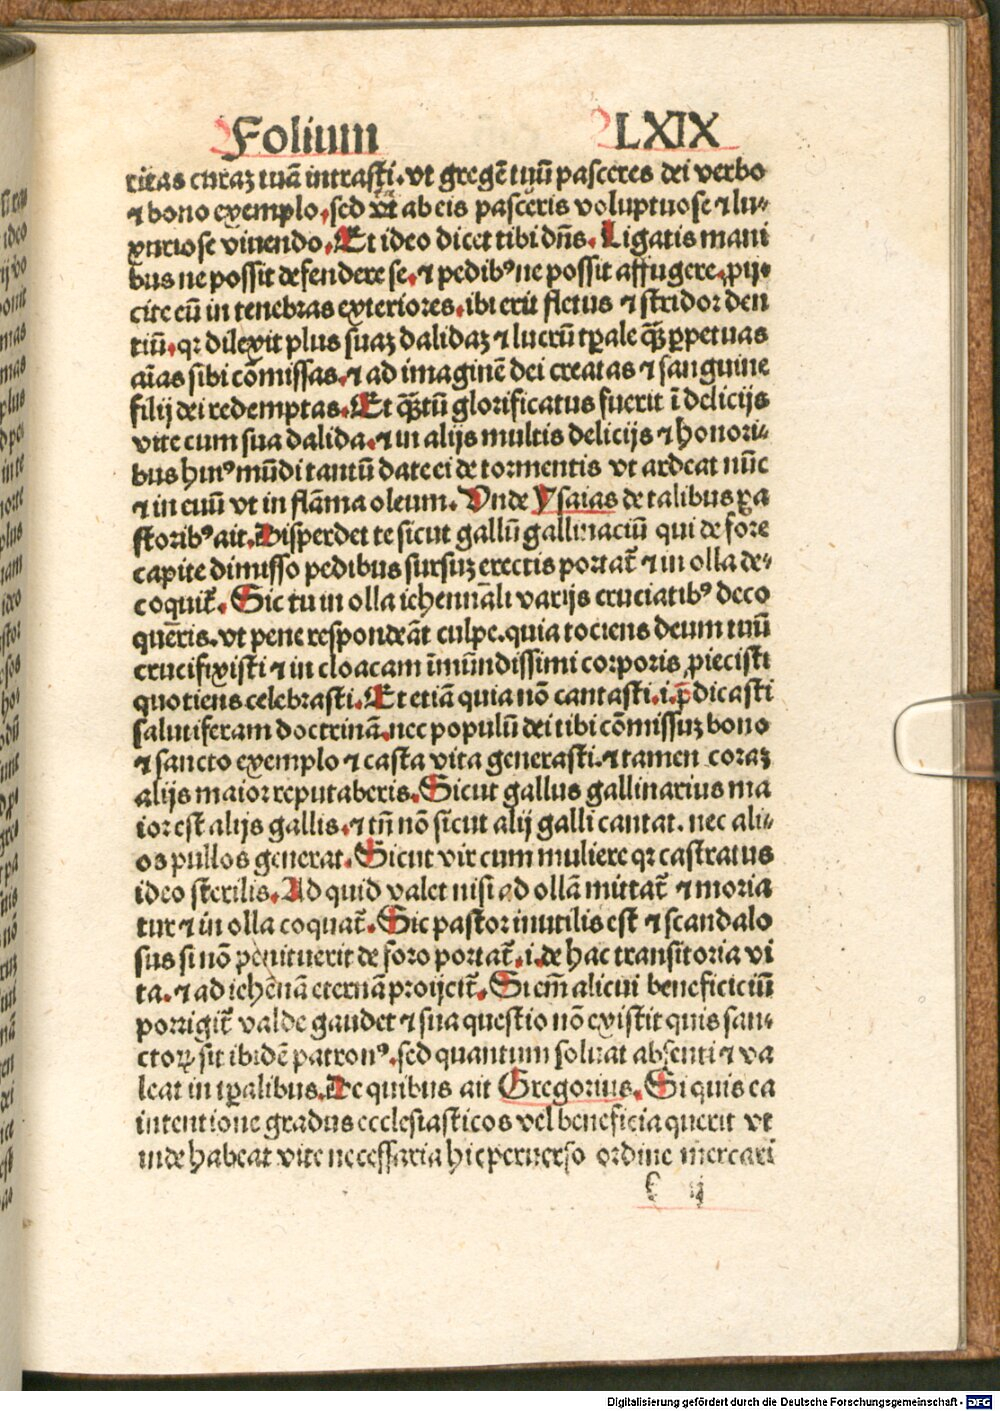 Folium LXIX
ritas curaꝫ tuā intrasti. vt gregē tuū pasceres dei verbo
⁊ bono exemplo, sed vt ab eis pasceris voluptuose ⁊ lu-
xuriose viuendo. Et ideo dicet tibi dn̄s. Ligatis mani
bus ne possit defendere se, ⁊ pedibꝰ ne possit affugere, ꝓij-
cite eū in tenebras exteriores, ibi erit fletus ⁊ stridor den
tiū, qꝛ dilexit plus suaꝫ dalidaꝫ ⁊ lucrū tꝑale qꝫ̄ ꝑpetuas
aīas sibi cōmissas, ⁊ ad imaginē dei creatas ⁊ sanguine
filij dei redemptas. Et qꝫ̄tū glorificatus fuerit ī delicijs
vite cum sua dalida, ⁊ in alijs multis delicijs ⁊ honori-
bus huiꝰ mūdi tantū date ei de tormentis vt ardeat nūc
⁊ in euū vt in flāma oleum. Unde Ysaias de talibus pa
storibꝰ ait. Disperdet te sicut gallū gallinaciū qui de fore
capite dimisso pedibus sursuꝫ erectis portat̄ ⁊ in olla de-
coquit̄. Sic tu in olla iehennāli varijs cruciatibꝰ deco
quēris. vt pene respondeāt culpe. quia tociens deum tuū
crucifixisti ⁊ in cloacam īmūndissimi corporis ꝓiecisti
quotiens celebrasti. Et etiā quia nō cantasti .i. p̄dicasti
salutiferam doctrinā, nec populū dei tibi cōmissuꝫ bono
⁊ sancto exemplo ⁊ casta vita generasti. ⁊ tamen coraꝫ
alijs maior reputaberis. Sicut gallus gallinarius ma
ior est alijs gallis, ⁊ tn̄ nō sicut alij galli cantat. nec ali-
os pullos generat. Sicut vir cum muliere qꝛ castratus
ideo sterilis. Ad quid valet nisi ad ollā mittat̄ ⁊ moria
tur ⁊ in olla coquat̄. Sic pastor inutilis est ⁊ scandalo
sus si nō penituerit de foro portat̄ .i. de hac transitoria vi
ta. ⁊ ad iehēnā eternā proijcit̄. Si em̄ alicui beneficiciū
porrigit̄ valde gaudet ⁊ sua questio nō existit quis san-
ctoꝝ sit ibidē patronꝰ. sed quantum soluat absenti ⁊ va
leat in tꝑalibus. De quibus ait Gregorius. Si quis ea
intentione gradus ecclesiasticos vel beneficia querit vt
inde habeat vite necessaria hic peruerso ordine mercari
ij
Digitalisierung gefördert durch die Deutsche Forschungsgemeinschaft - DFG